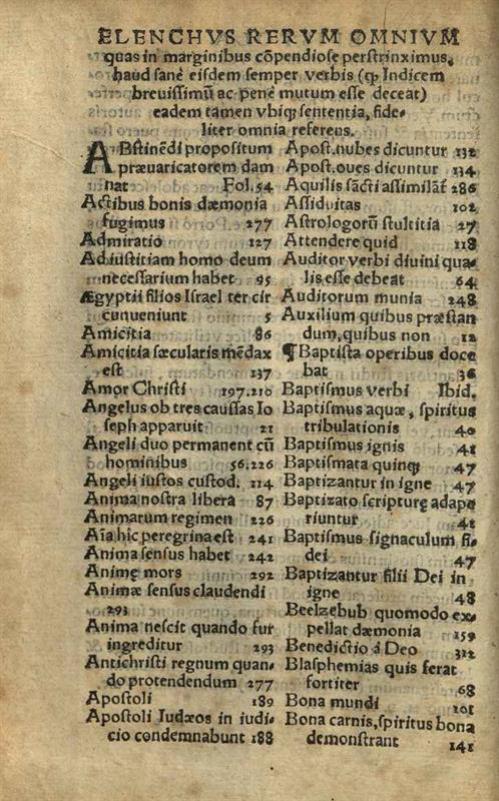 ELENCHVS RERVM OMNIVM
quas in marginibus cõpendiose perstrinximus,
haud sanè eisdem semper verbis (ꝙ Indicem
breuissimũ ac penè mutum esse deceat)
eadem tamen vbiqꝫ sententia, fide-
liter omnia referens.
ABstinẽdi propositum
præuaricatorem dam
nat Fol. 54
Actibus bonis dæmonia
fugimus 277
Admiratio 127
Ad iustitiam homo deum
necessarium habet 95
Ægyptii filios Israel ter cir
cunueniunt 5
Amicitia 86
Amicitia sæcularis mẽdax
est 137
Amor Christi 197.210
Angelus ob tres caussas Io
seph apparuit 21
Angeli duo permanent cũ
hominibus 56.226
Angeli iustos custod. 114
Anima nostra libera 87
Animarum regimen 226
Aĩa hic peregrina est 241
Anima sensus habet 242
Animę mors 292
Animæ sensus claudendi
293
Anima nescit quando fur
ingreditur 293
Antichristi regnum quan-
do protendendum 277
Apostoli 189
Apostoli Iudæos in iudi-
cio condemnabunt 188
Apost. nubes dicuntur 132
Apost. oues dicuntur 134
Aquilis sãcti assimilãt᷑ 286
Assiduitas 102
Astrologorũ stultitia 27
Attendere quid 118
Auditor verbi diuini qua-
lis esse debeat 64
Auditorum munia 248
Auxilium quibus præstan
dum, quibus non 12
¶ Baptista operibus doce
bat 36
Baptismus verbi Ibid.
Baptismus aquæ, spiritus
tribulationis 40
Baptismus ignis 41
Baptismata quinqꝫ 47
Baptizantur in igne 47
Baptizato scripturę adape
riuntur 41
Baptismus signaculum fi-
dei 47
Baptizantur filii Dei in
igne 48
Beelzebub quomodo ex-
pellat dæmonia 159
Benedictio à Deo 312
Blasphemias quis ferat
fortiter 68
Bona mundi 101
Bona carnis, spiritus bona
demonstrant 141